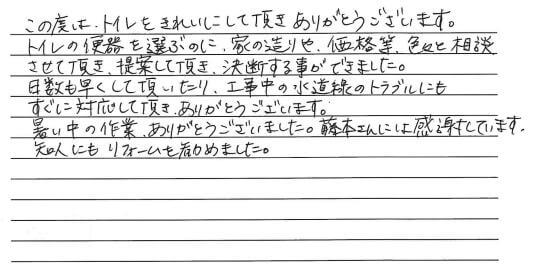 この度は、トイレをきれいにして頂きありがとうございます。
トイレの便器を選ぶのに、家の造りや、価格等、色々と相談
させて頂き、提案して頂き、決断する事ができました。
日数も早くして頂いたり、工事中の水道線のトラブルにも
すぐに対応して頂き、ありがとうございます。
暑い中の作業、ありがとうございました。藤本さんには感謝しています。
知人にもリフォームを勧めました。